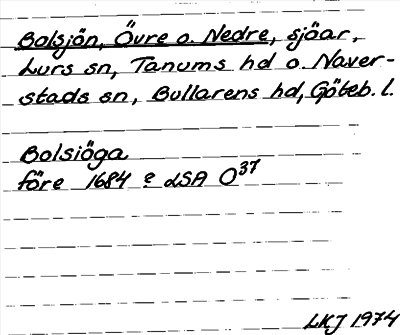 Bolsjön, Övre o. Nedre, sjöar,
Lurs sn, Tanums hd o. Naver-
stads sn, Bullarens hd, Göteb. l.
Bolsiöga
före 1684 ? LSA O37
LKJ 1974